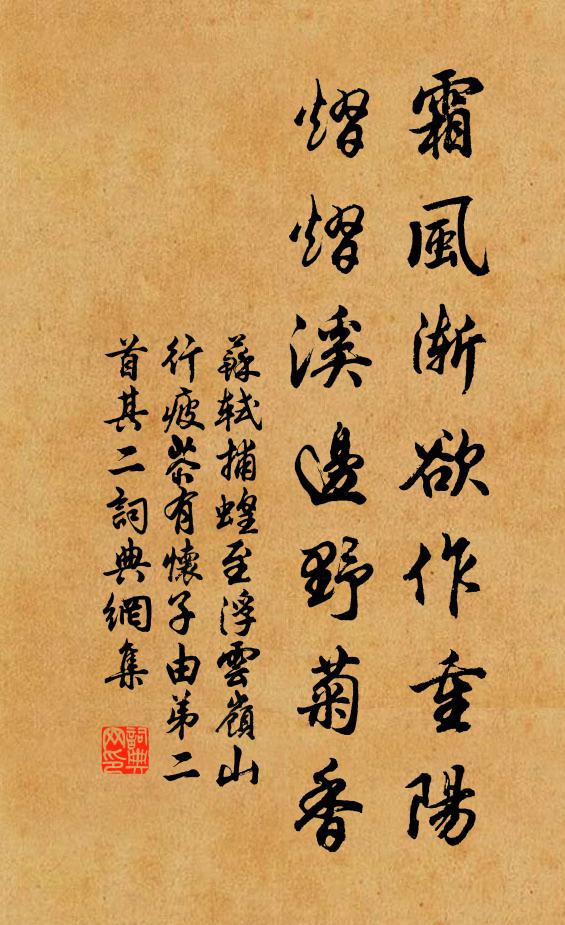 霜風漸欲作重陽
熠熠溪邊野菊香
蘇軾捕蝗至浮雲嶺山
行疲苶有懷子由弟二
首其二詞典網集
詞典
网印